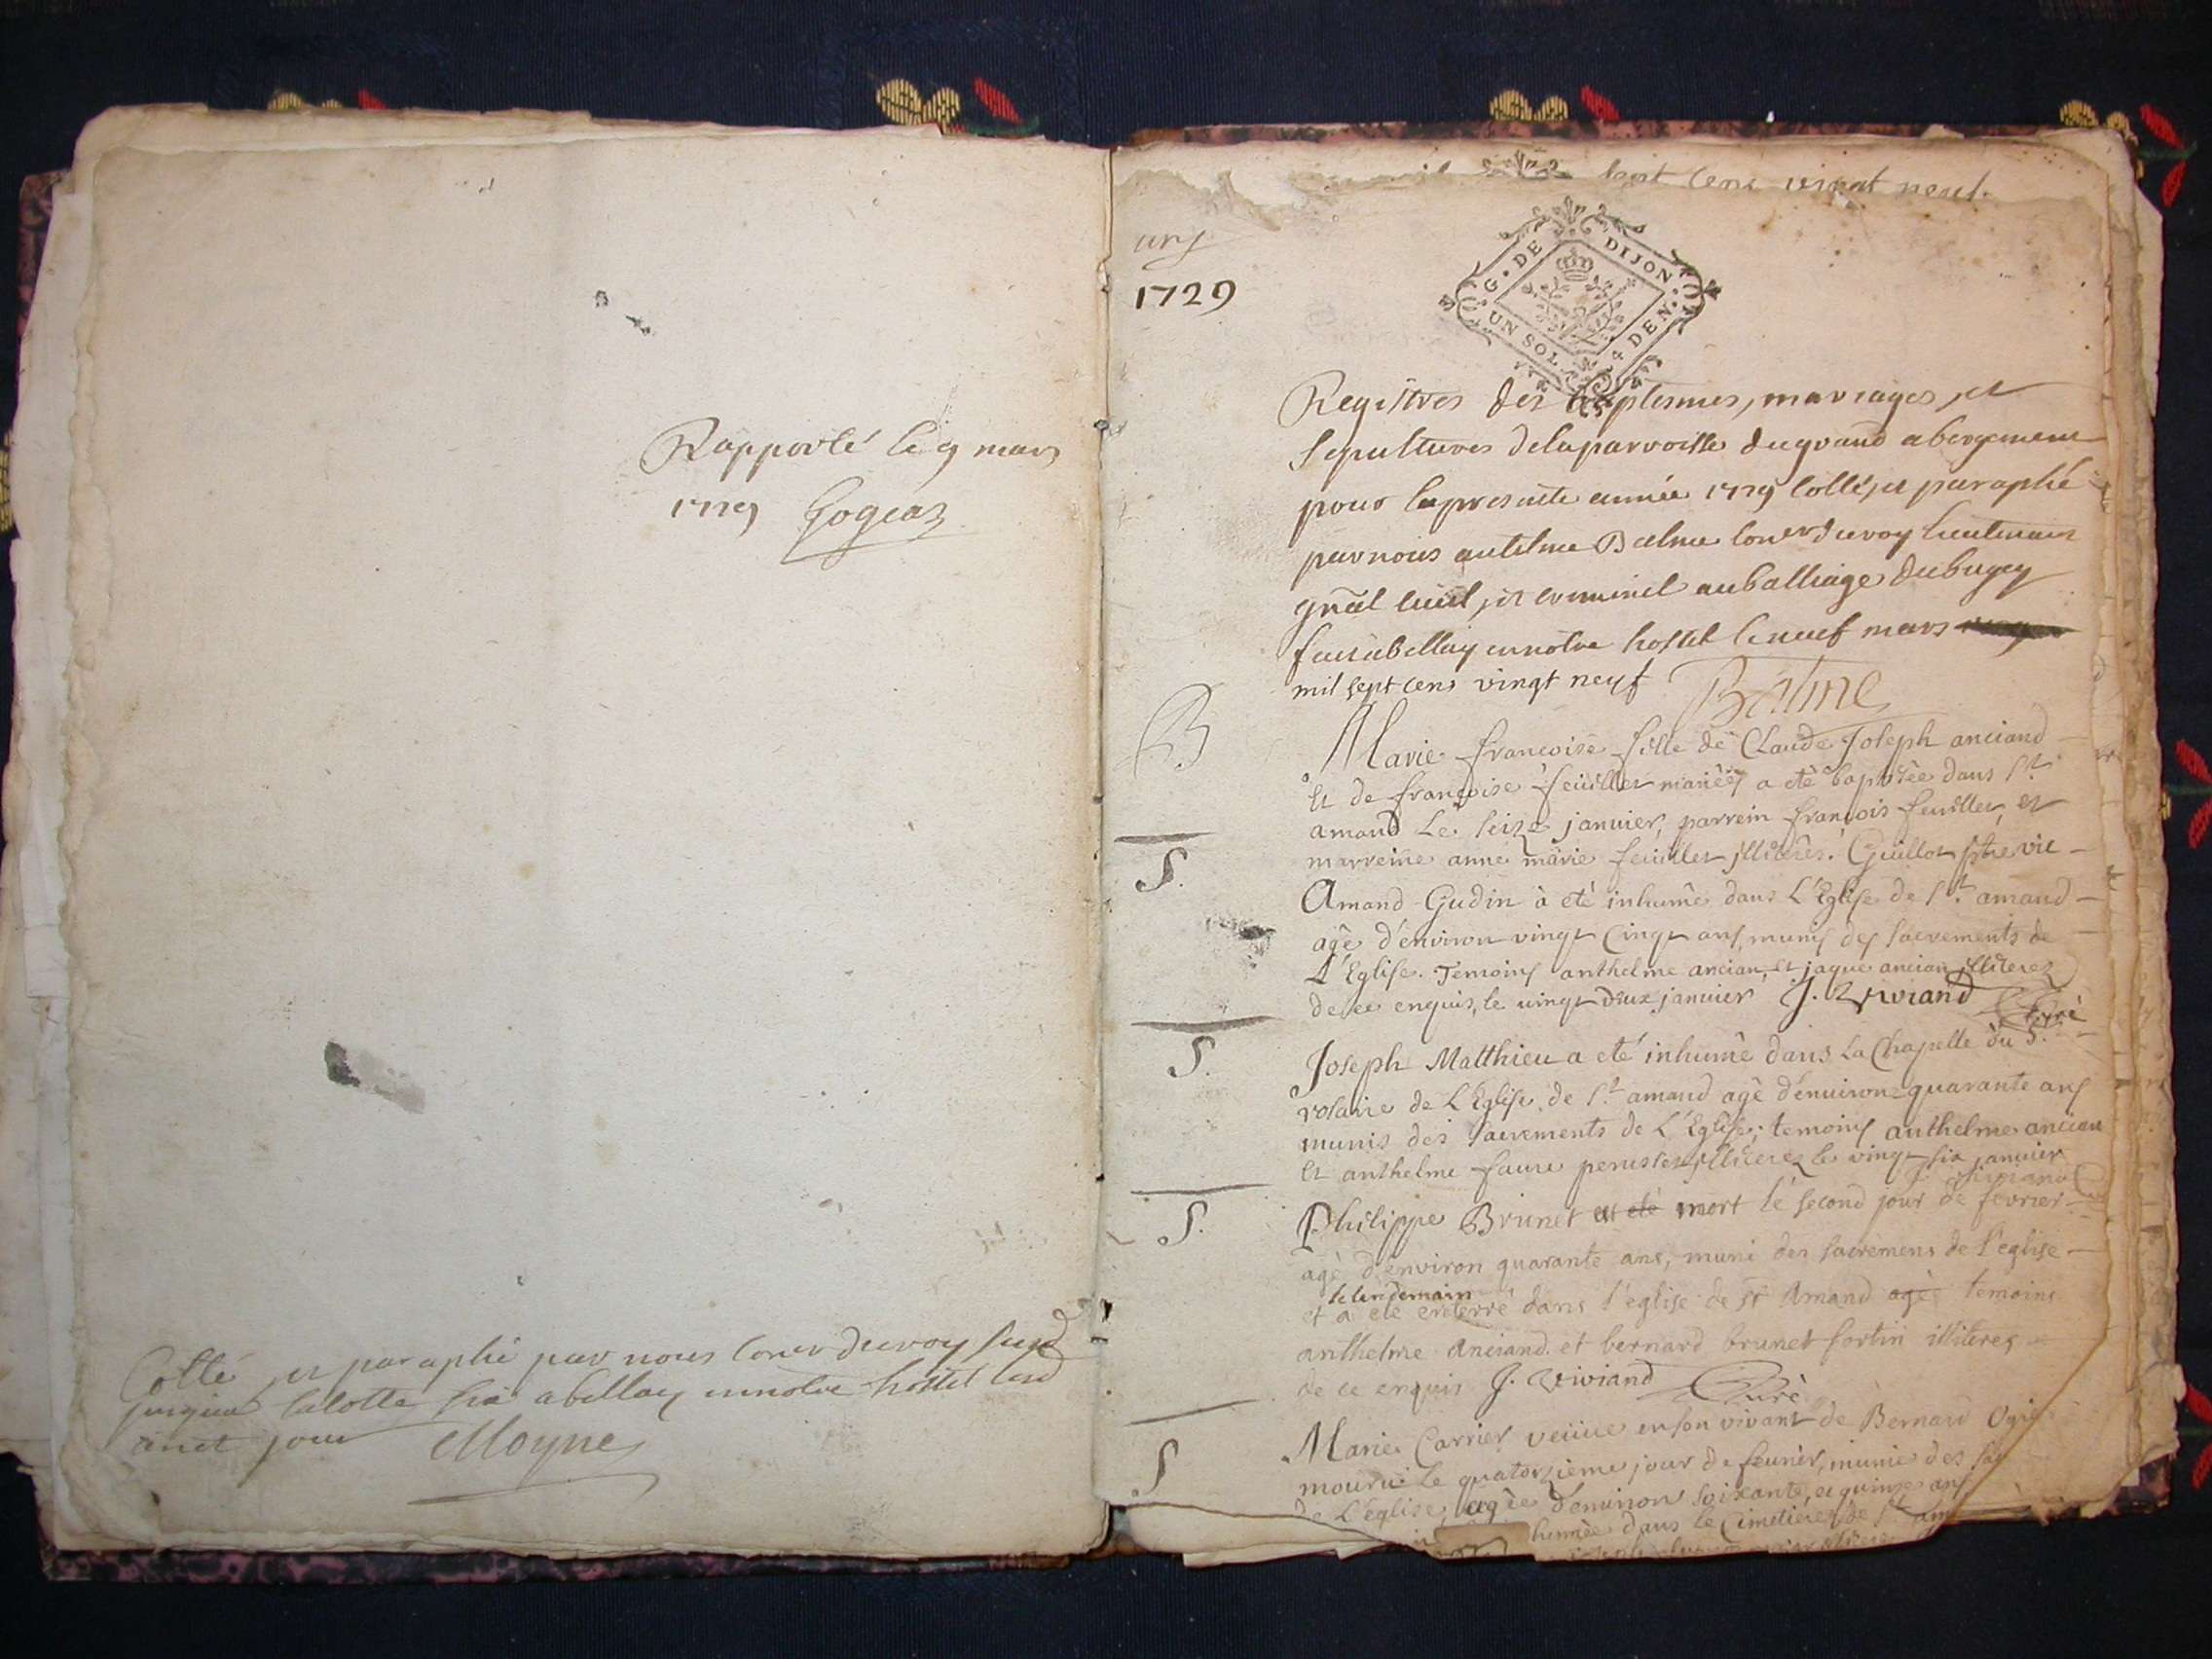 Rapporté le 9 mars
1729 Gogeaz
Cotté, et paraphé par nous Coner du roy susd
jusques la cotte six a bellay en notre hostel lesd
an et jour Moyne
sept cens vingt neuf.
ung
1729
G. DE DIJON
UN SOL 4 DEN.
Registres des baptesmes, mariages, et
sepultures de la parroisse du grand abergement
pour la presente année 1729 Cotté, et paraphé
par nous antelme Balme Coner du roy lieutenant
gnãl civil, et criminel au balliage du bugey
fait a bellay en notre hostel le neuf mars
mil sept cens vingt neuf Balme
B
Marie françoise fille de Claude Joseph anciand
et de françoise feüillet mariés a eté baptisée dans St
amand Le seize janvier, parrein françois feuillet, et
marreine anne marie feuillet jlliterés. Guillot ptre vic
S.
Amand Gudin à eté inhumé dans L'Eglise de St. amand
agé d'environ vingt Cinqt ans, munis des sacrements de
L'Eglise. Temoins anthelme ancian, et jaque ancian jlliterez
de ce enquis, le vingt deux janvier J. Reviand Curé
S.
Joseph Matthieu a eté inhumé dans La Chapelle du S.
rosaire de L'Eglise de St. amand agé d'environ quarante ans
munis des sacrements de L'Eglise; temoins anthelme ancian
et anthelme faure jlliterez le vingt six janvier
S.
Philippe Brunet est eté mort le second jour de fevrier
agé d'environ quarante ans, muni des sacremens de l'eglise
le lendemain
et a eté enterré dans l'eglise de St Amand agée temoins
anthelme Anciand et bernard brunet fortin illiterez
de ce enquis J. Reviand Curé
S
Marie Carrier veüue en son vivant de Bernard
mourut Le quatorzieme jour de feurier, munie des
de L'eglise, agée d'environ soixante, et quinze ans
humée dans le Cimetiere de St. am